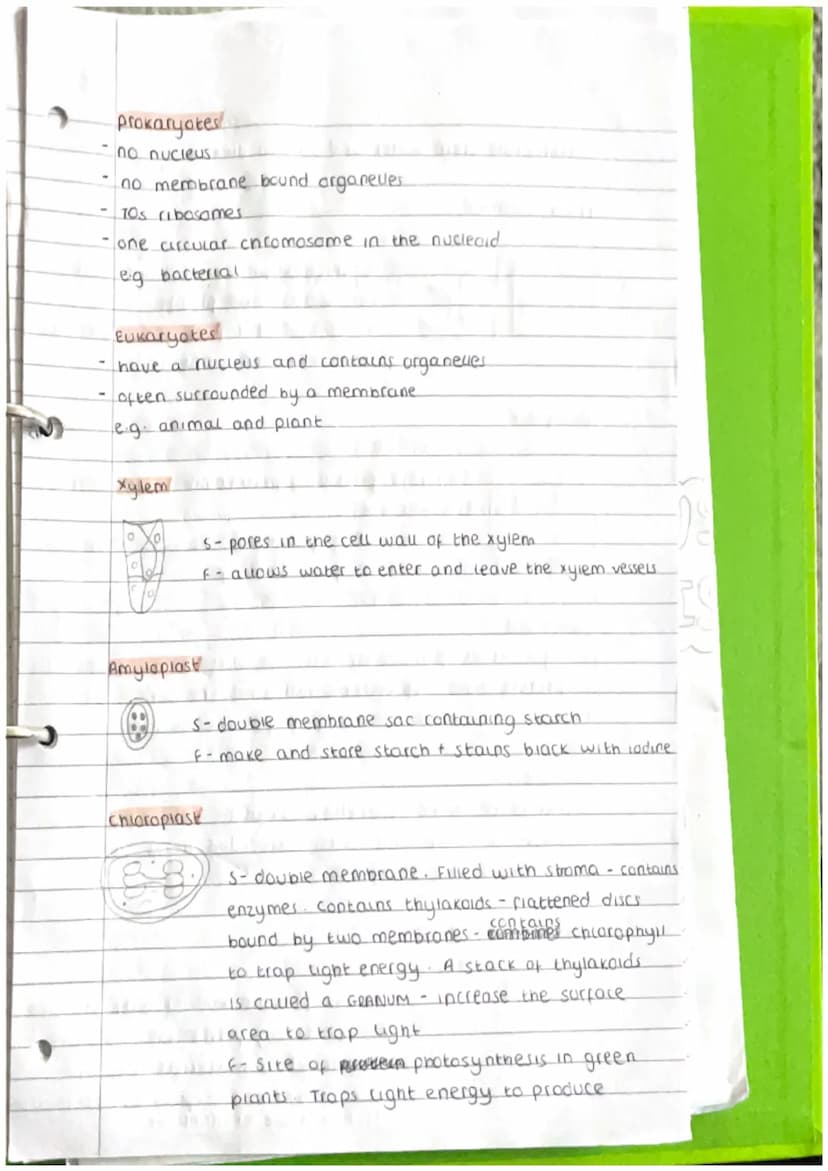 Prokaryotes
- no nucleus
- no membrane bound organelles
- 70s ribosomes
- one circular chromosome in the nucleoid
e.g bacterial
Eukaryotes
- have a nucleus and contains organelles
- often surrounded by a membrane
e.g. animal and plant
Xylem
S- pores in the cell wall of the xylem
F- allows water to enter and leave the xylem vessels
Amyloplast
S- double membrane sac containing starch
F- make and store starch + stains black with iodine
Chloroplast
S- double membrane. Filled with stroma - contains
enzymes. contains thylakoids - flattened discs
bound by two membranes - contains chlorophyll
to trap light energy. A stack of thylakoids
is called a GRANUM - increase the surface
area to trap light
F- site of photosynthesis in green
plants. Traps light energy to produce